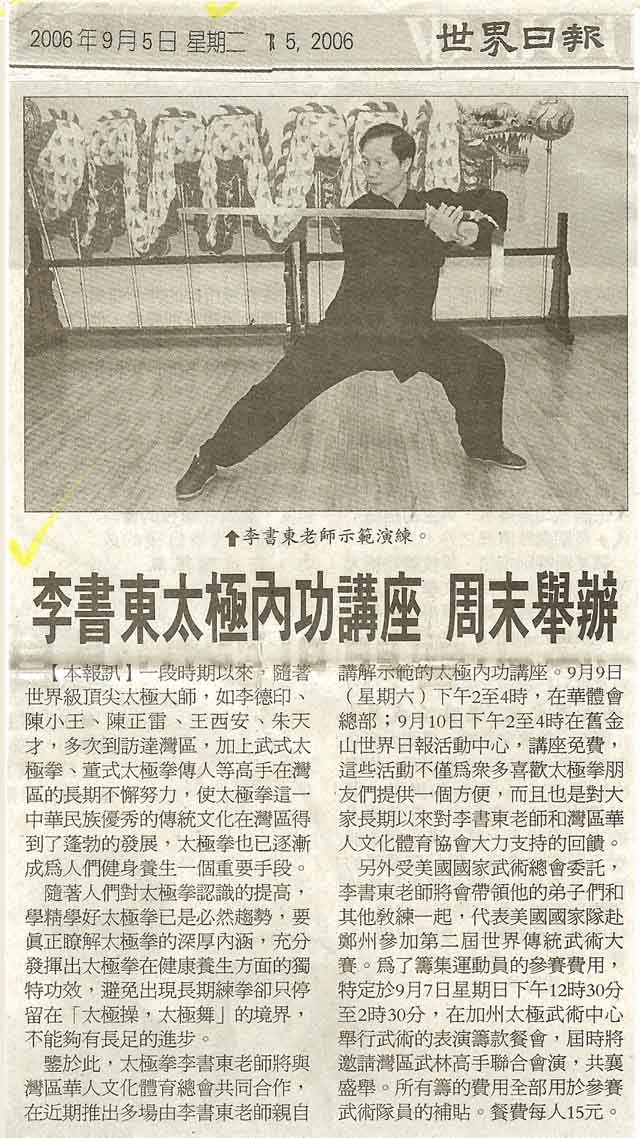 2006年9月5日 星期二 5, 2006
世界日報
⬆李書東老師示範演練。
李書東太極內功講座 周末舉辦
【本報訊】一段時期以來，隨著
世界級頂尖太極大師，如李德印、
陳小王、陳正雷、王西安、朱天
才，多次到訪達灣區，加上武式太
極拳、董式太極拳傳人等高手在灣
區的長期不懈努力，使太極拳這一
中華民族優秀的傳統文化在灣區得
到了蓬勃的發展，太極拳也已逐漸
成為人們健身養生一個重要手段。
隨著人們對太極拳認識的提高，
學精學好太極拳已是必然趨勢，要
真正瞭解太極拳的深厚內涵，充分
發揮出太極拳在健康養生方面的獨
特功效，避免出現長期練拳卻只停
留在「太極操，太極舞」的境界，
不能夠有長足的進步。
鑒於此，太極拳李書東老師將與
灣區華人文化體育總會共同合作，
在近期推出多場由李書東老師親自
講解示範的太極內功講座。9月9日
（星期六）下午2至4時，在華體會
總部；9月10日下午2至4時在舊金
山世界日報活動中心，講座免費，
這些活動不僅為眾多喜歡太極拳朋
友們提供一個方便，而且也是對大
家長期以來對李書東老師和灣區華
人文化體育協會大力支持的回饋。
另外受美國國家武術總會委託，
李書東老師將會帶領他的弟子們和
其他教練一起，代表美國國家隊赴
鄭州參加第二屆世界傳統武術大
賽。為了籌集運動員的參賽費用，
特定於9月7星期日下午12時30分
至2時30分，在加州太極武術中心
舉行武術的表演籌款餐會，屆時將
邀請灣區武林高手聯合會演，共襄
盛舉。所有籌的費用全部用於參賽
武術隊員的補貼。餐費每人15元。